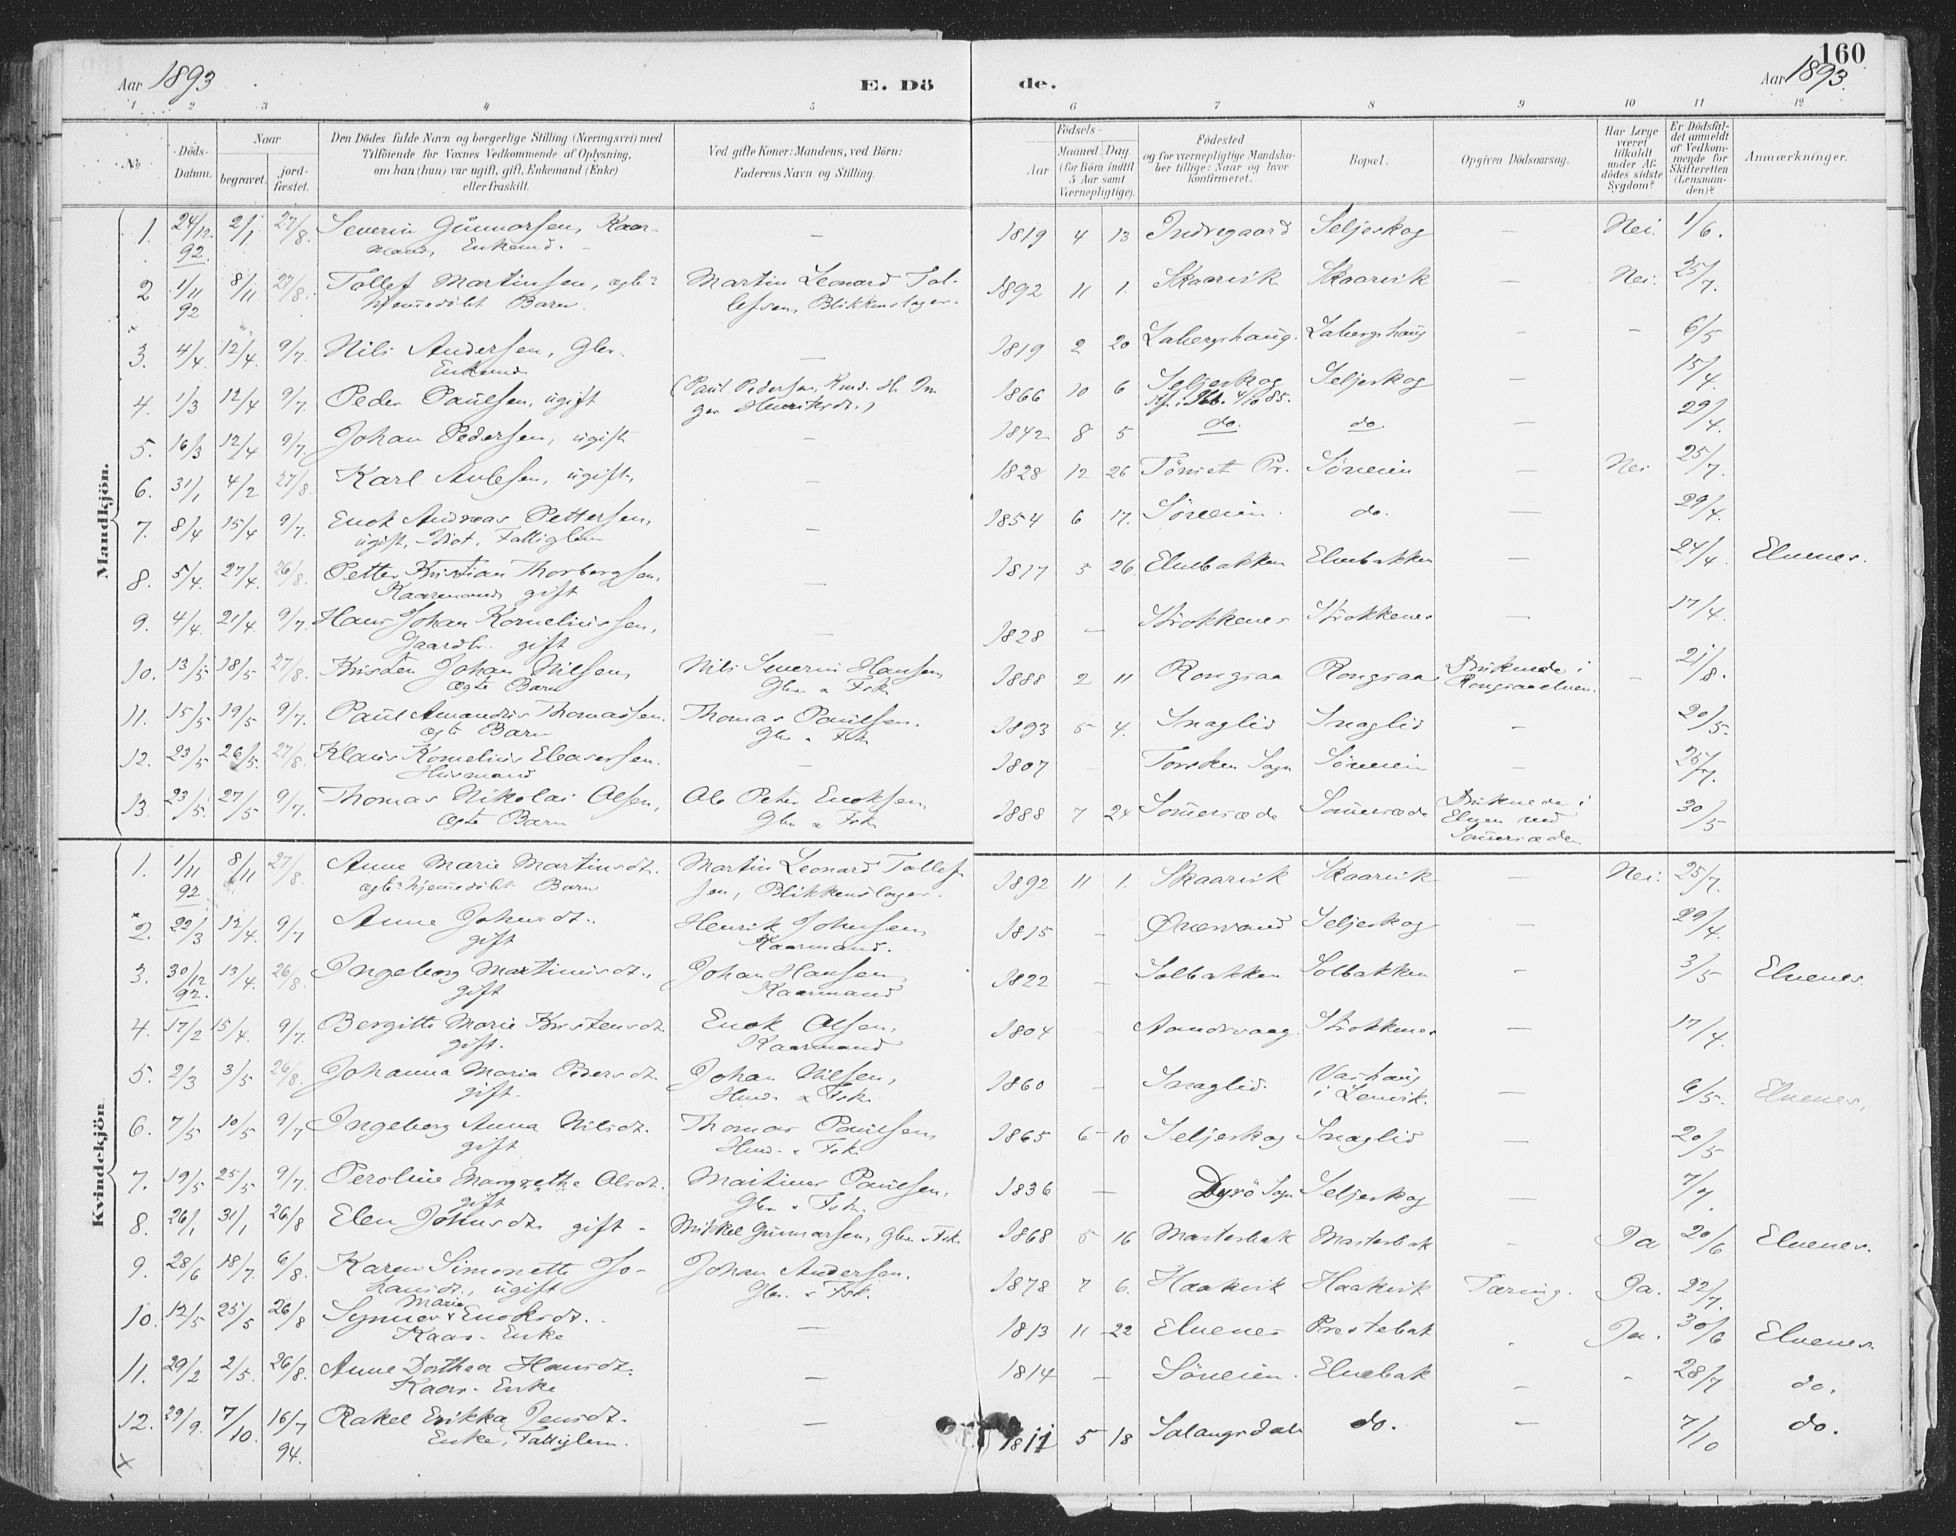 Aar 1893 E. Döde. Aar 1893. 160
1 2 3 4 5 6 7 8 9 10 11 12
No Döds-Datum. Naar begravet. jordfæstet. Den Dödes fulde Navn og borgerlige Stilling (Næringsvei) med Tilföiende for Voxnes Vedkommende af Oplysning, om han (hun) var ugift, gift, Enkemand (Enke) eller fraskilt. Ved gifte Koner: Mandens, ved Börn: Faderens Navn og Stilling. Födsels- Aar Maaned. Dag (for Börn indtil 5 Aar samt Værnepligtige). Födested og for værnepligtige Mandskaber tillige: Naar og hvor konfirmeret. Bopæl. Opgiven Dödsaarsag. Har Læge været tilkaldt under Afdödes sidste Sygdom? Er Dödsfaldet anmeldt af Vedkommende for Skifteretten (Lensmanden)? Anmærkninger.
Mandkjön.
1. 24/12 92. 2/1 27/8. Severin Gunnarsen, Kaarmand, Enkemd. - 1819 4 13 Indregaard Seljeskog - Nei. 1/6.
2 1/11 92 8/11 27/8. Tollef Martinsen, ægte hjemmedöbt Barn Martin Leonard Tollefsen, Blikkenslager. 1892 11 1. Skaarvik Skaarvik - Nei. 25/7.
3. 4/4. 12/4. 9/7. Nils Andersen, Gbr. Enkemd - 1819 2 20 Laberghaug. Laberghaug - - 6/5
4. 1/3 12/4 9/7. Peder Paulsen, ugift (Paul Pedersen, 1866 10 6 Seljeskog 4/10 85. Seljeskog - 15/4.
5. 16/3 12/4 9/7. Johan Pedersen, ugift - 1842 8 5 do. do. - 29/4.
6. 31/1 4/2 27/8. Karl Aulesen, ugift, - 1828 12 26 Tönset Pr. Söreien - Nei 25/7.
7. 8/4 15/4 9/7. Enok Andreas Pettersen, ugift, Idiot, Fattiglem - 1854 6 17. Söreien. do. - 29/4.
8. 5/4. 27/4. 26/8. Petter Kristian Thorbergsen, Kaarmand, gift - 1817 5 26. Elvebakken Elvebakken - 24/4. Elvenes.
9. 4/4. 21/4. 9/7. Hans Johan Korneliussen, Gaardbr. gift - 1828 - Strokkenes Strokkenes - 17/4.
10. 13/5 18/5 27/8. Kristen Johan Nilsen, ægte Barn Nils Severin Hansen, Gbr & Fisk. 1888 2 11 Rongsaa Rongsaa Druknede i Rongsaaelven. - 21/8.
11. 15/5 19/5 9/7. Paul Amandus Thomassen. ægte Barn Thomas Paulsen. Gbr. & Fisk. 1893 5 4. Snaglid Snaglid - 20/5.
12. 23/5 26/5. 27/8. Klaus Kornelius Eleasersen. Husmand - 1807 Torsken Sogn Söreien - 25/7.
13. 23/5. 27/5 9/7. Thomas Nikolai Olsen, ægte Barn Ole Peter Enoksen, Gbr & Fisk. 1888 7 24 Sommersæde Sommersæde Druknede i Elven ved Sommersæde 30/5
Kvindekjön.
1. 1/11 92 8/11 27/8. Anne Marie Martinsdt. ægte hjemmedöbt Barn Martin Leonard Tollefsen, Blikkenslager. 1892 11 1. Skaarvik Skaarvik - Nei. 25/7.
2. 22/3 12/4. 9/7 Anne Johnsdt. gift Henrik Johnsen, Kaarmand. 1815 - Seljeskog - 29/4.
3. 30/12 92. 13/4. 26/8. Ingeborg Martinusdt., gift Johan Hansen, Kaarmand 1822 - Solbakken Solbakken - 3/5 Elvenes.
4. 17/2 15/4. 9/7 Bergitte Marie Kristensdt. gift. Enok Olsen, Kaarmand 1804 - Aandervaag. Strokkenes - 17/4.
5. 2/3 3/5 26/8. Johanna Maria Pedersdt. gift. Johan Nilsen, Husmd. & Fisk. 1860 - Snaglid. Varhaug i Lenvik. - 6/5. Elvenes.
6. 7/5 10/5 9/7 Ingeborg Anna Nilsdt. gift Thomas Paulsen, Husmd. & Fisk. 1865 6 10 Seljeskog Snaglid - 20/5
7. 19/5 25/5 9/7. Peroline Margrethe Olsdt. gift Martinus Paulsen, Gbr. & Fisk. 1836 - Dyrö Sogn Seljeskog - 7/7.
8. 26/1 31/1 26/8 Elen Johnsdt. gift - Mikkel Gunnarsen, Gbr. & Fisk. 1868 5 16 Mastesbak Mastesbak - Ja 20/6 Elvenes.
9. 28/6 18/7. 6/8. Karen Simonette Johansdt., ugift Johan Andersen. Gbr. & Fisk. 1878 7 6. Haakvik Haakvik Tæring. Ja. 22/7.
10. 12/5 25/5 26/8 Synnev Marie Enoksdt. Kaar-Enke - 1813 11 22 Elvenes Prestebak - Ja. 30/6 Elvenes.
11. 29/2 2/5. 26/8. Anne Dorthea Hansdt. Kaar-Enke - 1814 - Söreien. Elvebak - - 28/7 do.
12. 29/9. 7/10. 16/7 94. Rakel Erikka Jensdt. Enke, Fattiglem. - 1811 5 18 Salangsdal do. - 7/10 do.